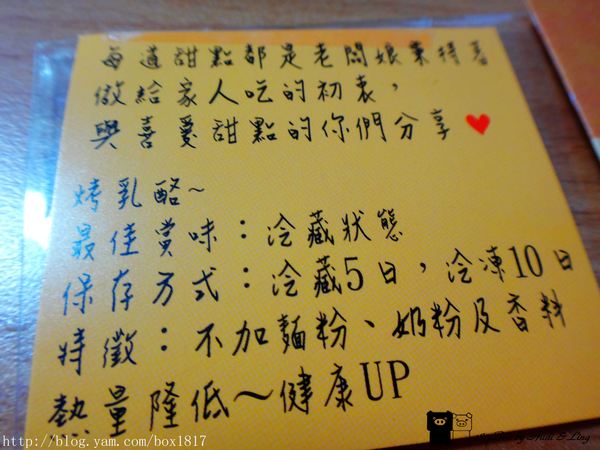 每道甜點都是老闆娘秉持著
做給家人吃的初衷，
與喜愛甜點的你們分享♥
烤乳酪~
最佳賞味：冷藏狀態
保存方式：冷藏5日，冷凍10日
特徵：不加麵粉、奶粉及香料
熱量降低～健康UP
http://blog.yam.com/box1817